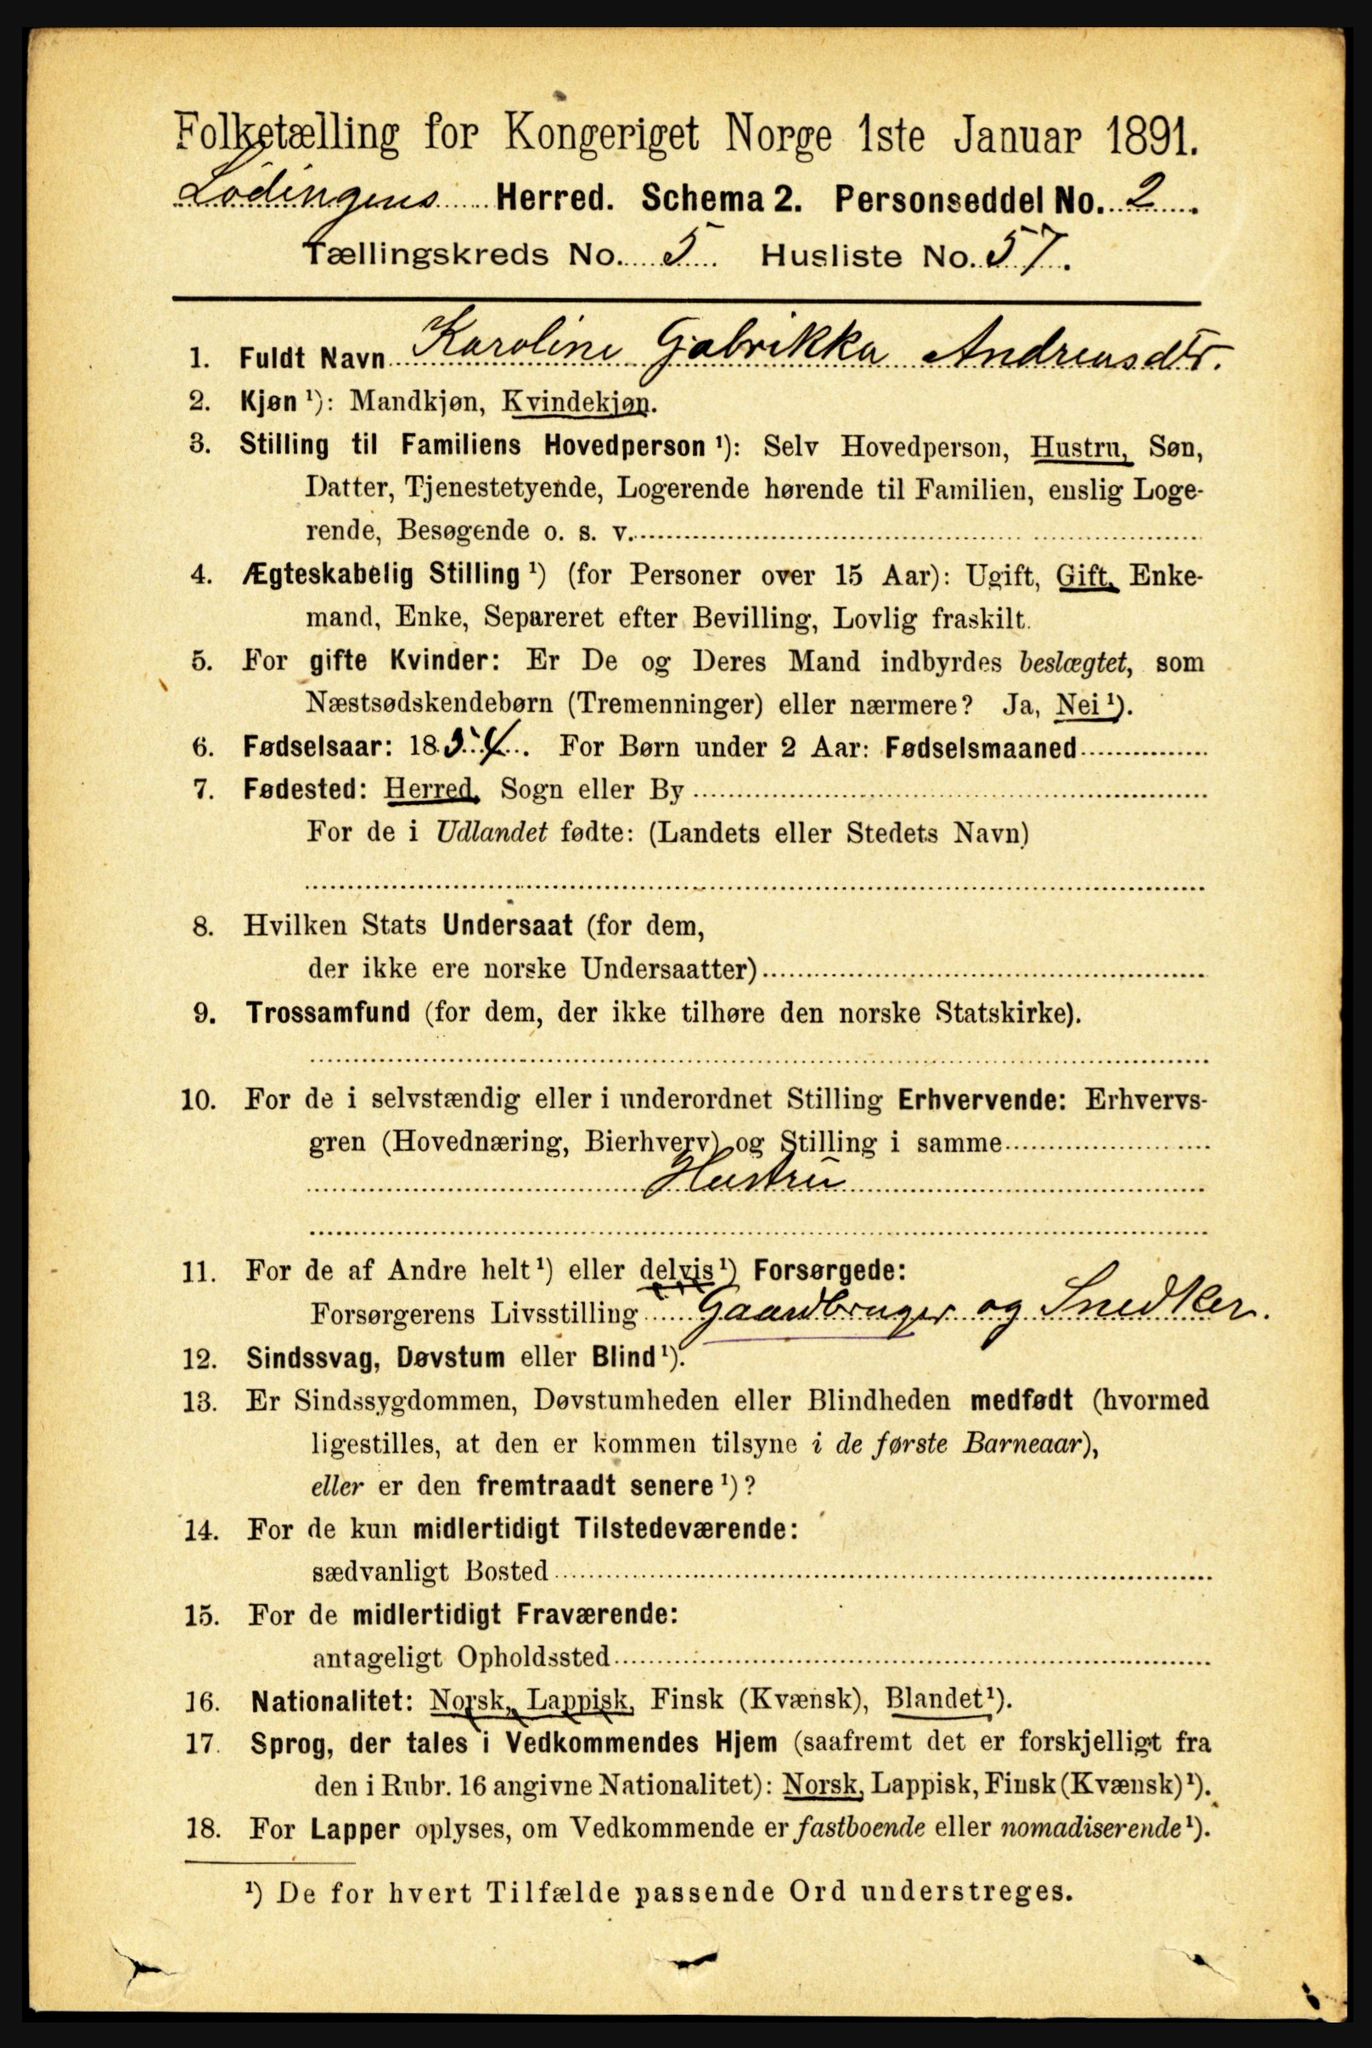 Folketælling for Kongeriget Norge 1ste Januar 1891.
Lødingens Herred. Schema 2. Personseddel No. 2.
Tællingskreds No. 5. Husliste No. 57.
1. Fuldt Navn Karoline Gabrikka Andreasdtr.
2. Kjøn ¹): Mandkjøn, Kvindekjøn.
3. Stilling til Familiens Hovedperson ¹): Selv Hovedperson, Hustru, Søn,
Datter, Tjenestetyende, Logerende hørende til Familien, enslig Loge-
rende, Besøgende o. s. v.
4. Ægteskabelig Stilling ¹) (for Personer over 15 Aar): Ugift, Gift, Enke-
mand, Enke, Separeret efter Bevilling, Lovlig fraskilt.
5. For gifte Kvinder: Er De og Deres Mand indbyrdes beslægtet, som
Næstsødskendebørn (Tremenninger) eller nærmere? Ja, Nei ¹).
6. Fødselsaar: 1854. For Børn under 2 Aar: Fødselsmaaned
7. Fødested: Herred, Sogn eller By
For de i Udlandet fødte: (Landets eller Stedets Navn)
8. Hvilken Stats Undersaat (for dem,
der ikke ere norske Undersaatter)
9. Trossamfund (for dem, der ikke tilhøre den norske Statskirke).
10. For de i selvstændig eller i underordnet Stilling Erhvervende: Erhvervs-
gren (Hovednæring, Bierhverv) og Stilling i samme
Hustru
11. For de af Andre helt ¹) eller delvis ¹) Forsørgede:
Forsørgerens Livsstilling Gaardbruger og Snedker.
12. Sindssvag, Døvstum eller Blind ¹).
13. Er Sindssygdommen, Døvstumheden eller Blindheden medfødt (hvormed
ligestilles, at den er kommen tilsyne i de første Barneaar),
eller er den fremtraadt senere ¹)?
14. For de kun midlertidigt Tilstedeværende:
sædvanligt Bosted
15. For de midlertidigt Fraværende:
antageligt Opholdssted
16. Nationalitet: Norsk, Lappisk, Finsk (Kvænsk), Blandet ¹).
17. Sprog, der tales i Vedkommendes Hjem (saafremt det er forskjelligt fra
den i Rubr. 16 angivne Nationalitet): Norsk, Lappisk, Finsk (Kvænsk) ¹).
18. For Lapper oplyses, om Vedkommende er fastboende eller nomadiserende ¹).
¹) De for hvert Tilfælde passende Ord understreges.